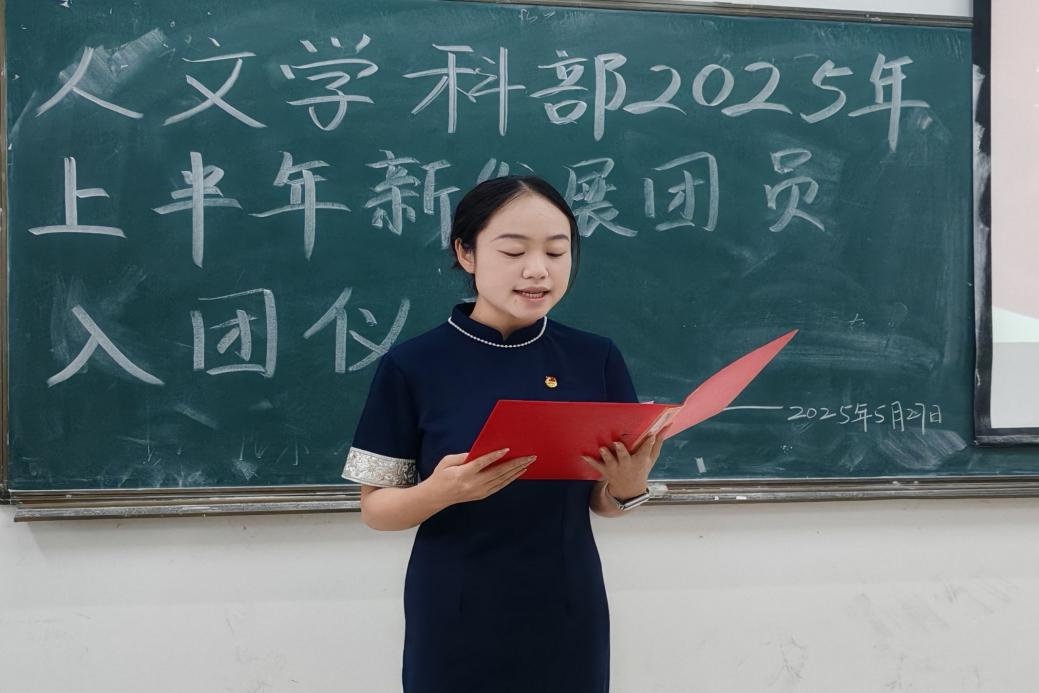 人文学科部2025年
上半年新发展团员
入团仪
2025年5月27日